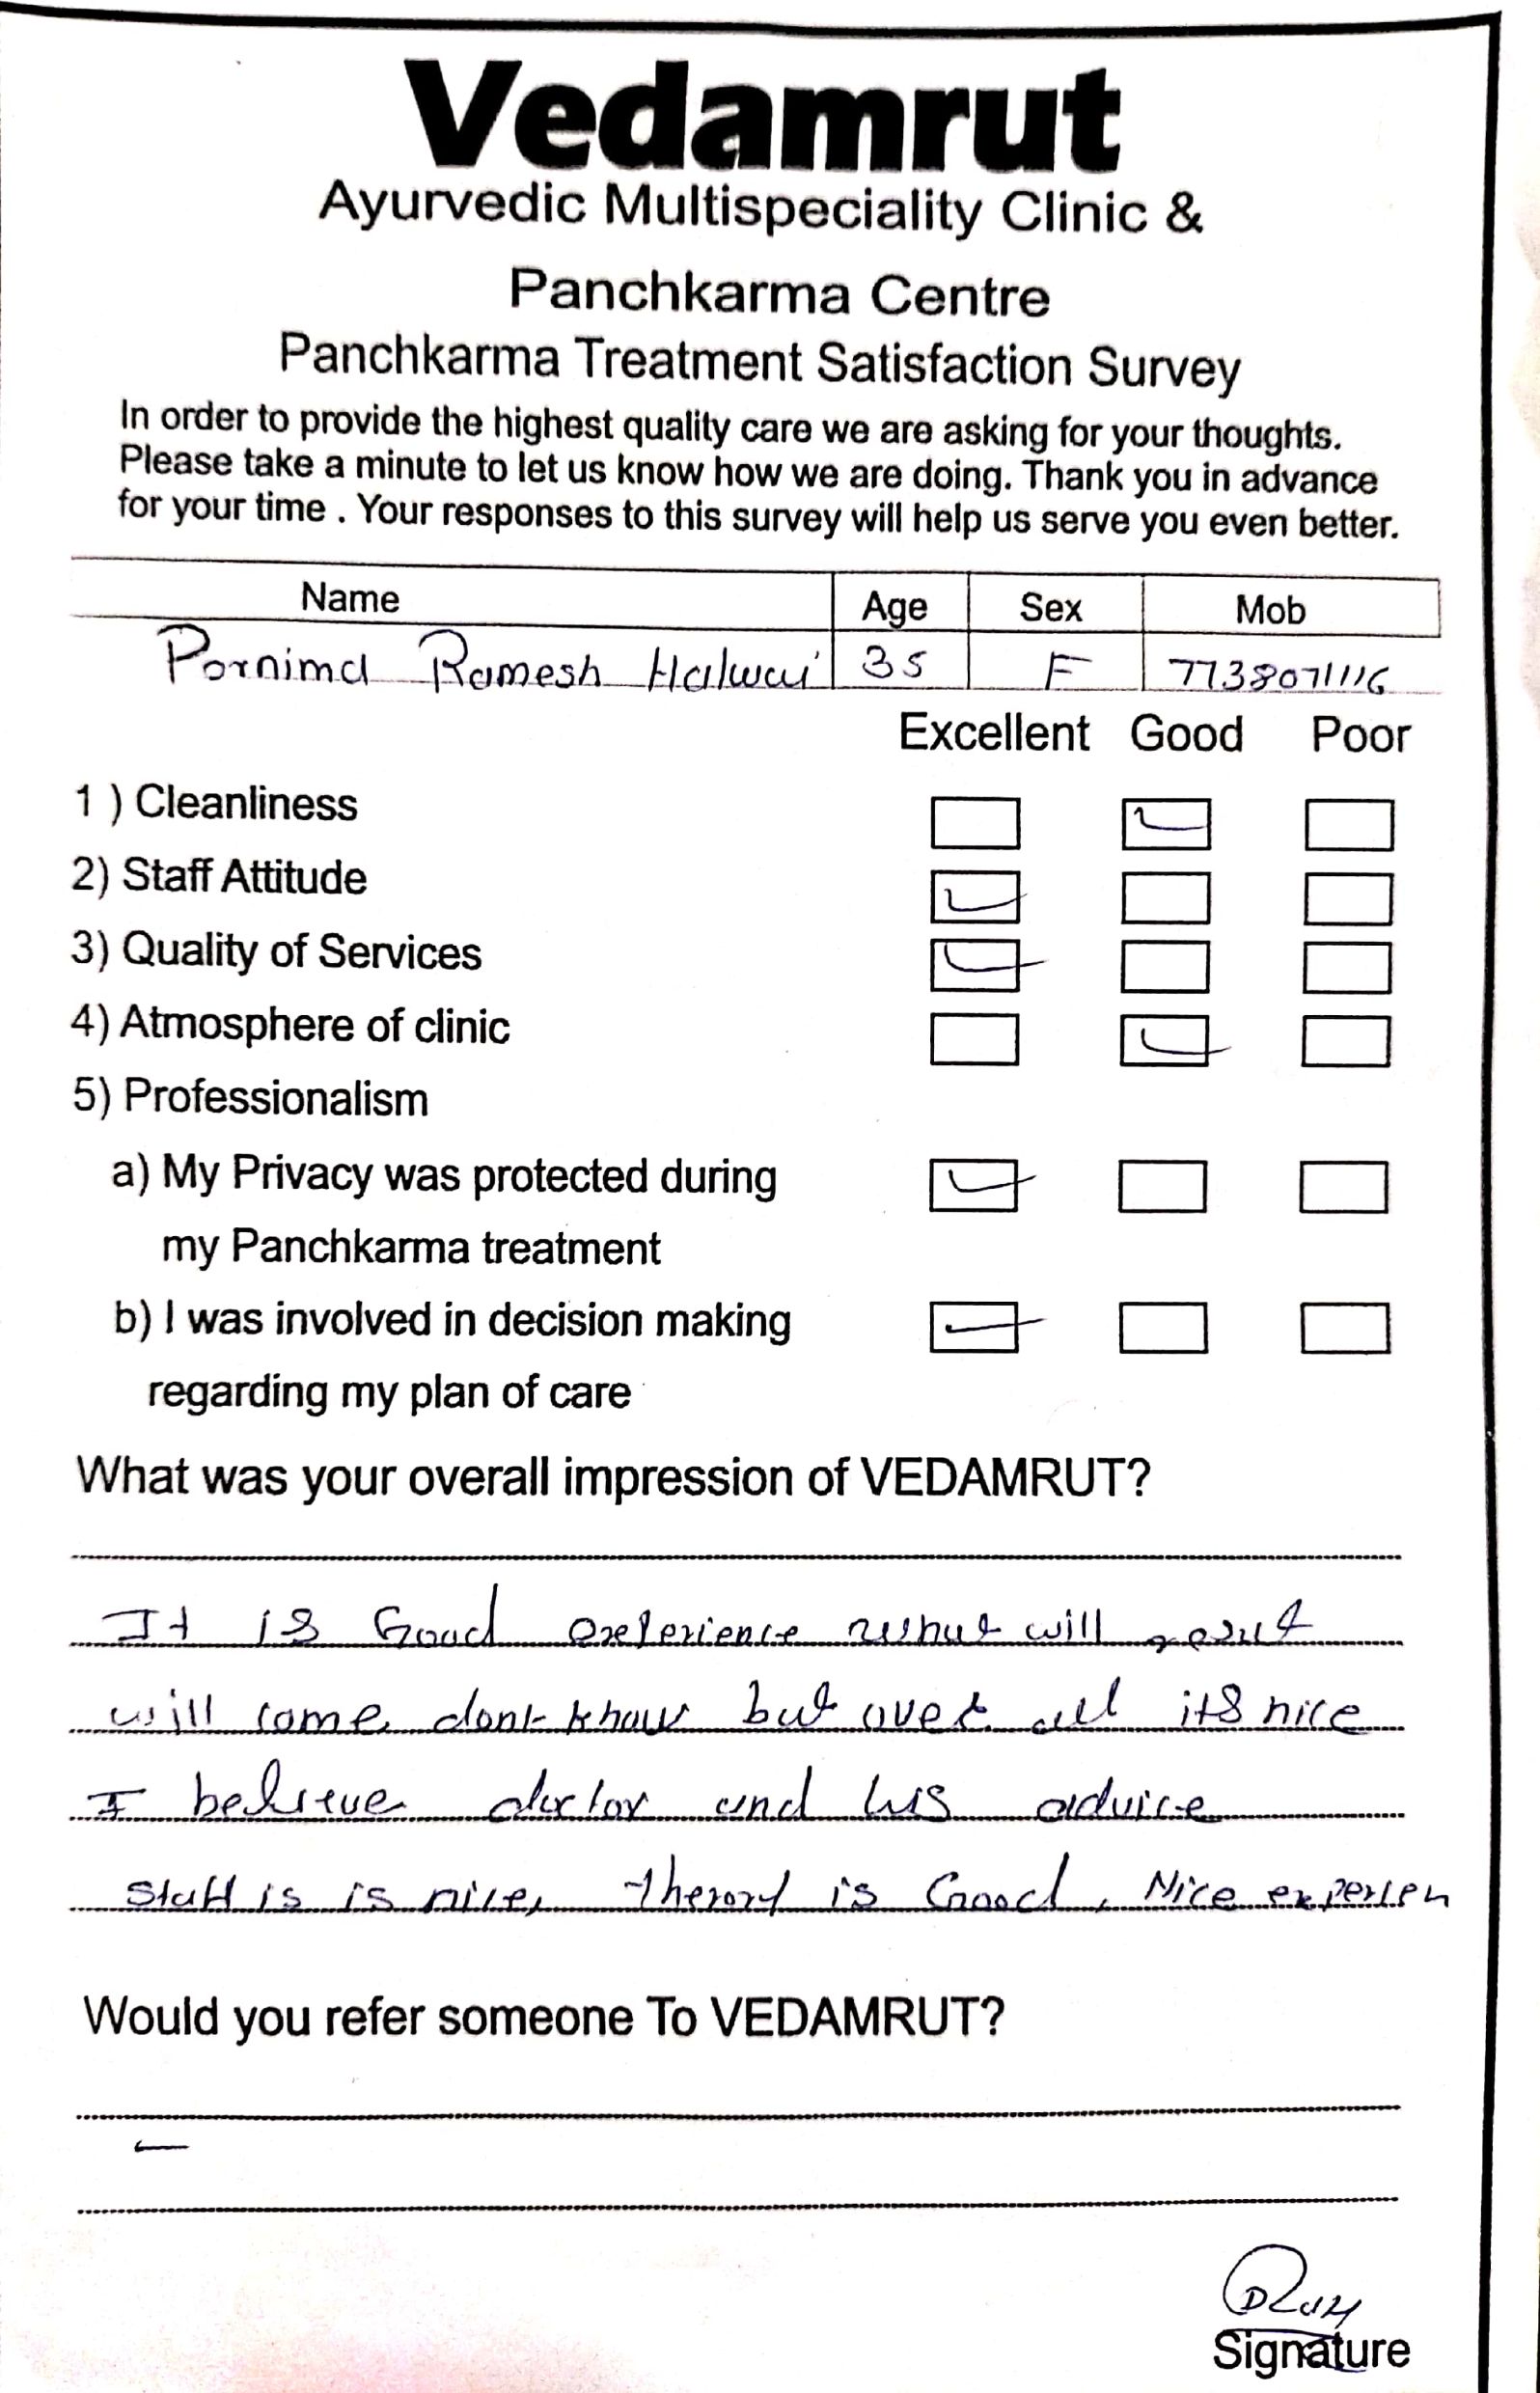 Vedamrut
Ayurvedic Multispeciality Clinic &
Panchkarma Centre
Panchkarma Treatment Satisfaction Survey
In order to provide the highest quality care we are asking for your thoughts.
Please take a minute to let us know how we are doing. Thank you in advance
for your time . Your responses to this survey will help us serve you even better.
Name Age Sex Mob
Pornima Ramesh Halwai 35 F 7738071116
Excellent Good Poor
1 ) Cleanliness
2) Staff Attitude
3) Quality of Services
4) Atmosphere of clinic
5) Professionalism
a) My Privacy was protected during
my Panchkarma treatment
b) I was involved in decision making
regarding my plan of care
What was your overall impression of VEDAMRUT?
It is Good will
will come dont know but over all its nice
I believe doctor and his advice
Staff is is nice, is Good, Nice experien
Would you refer someone To VEDAMRUT?
Signature